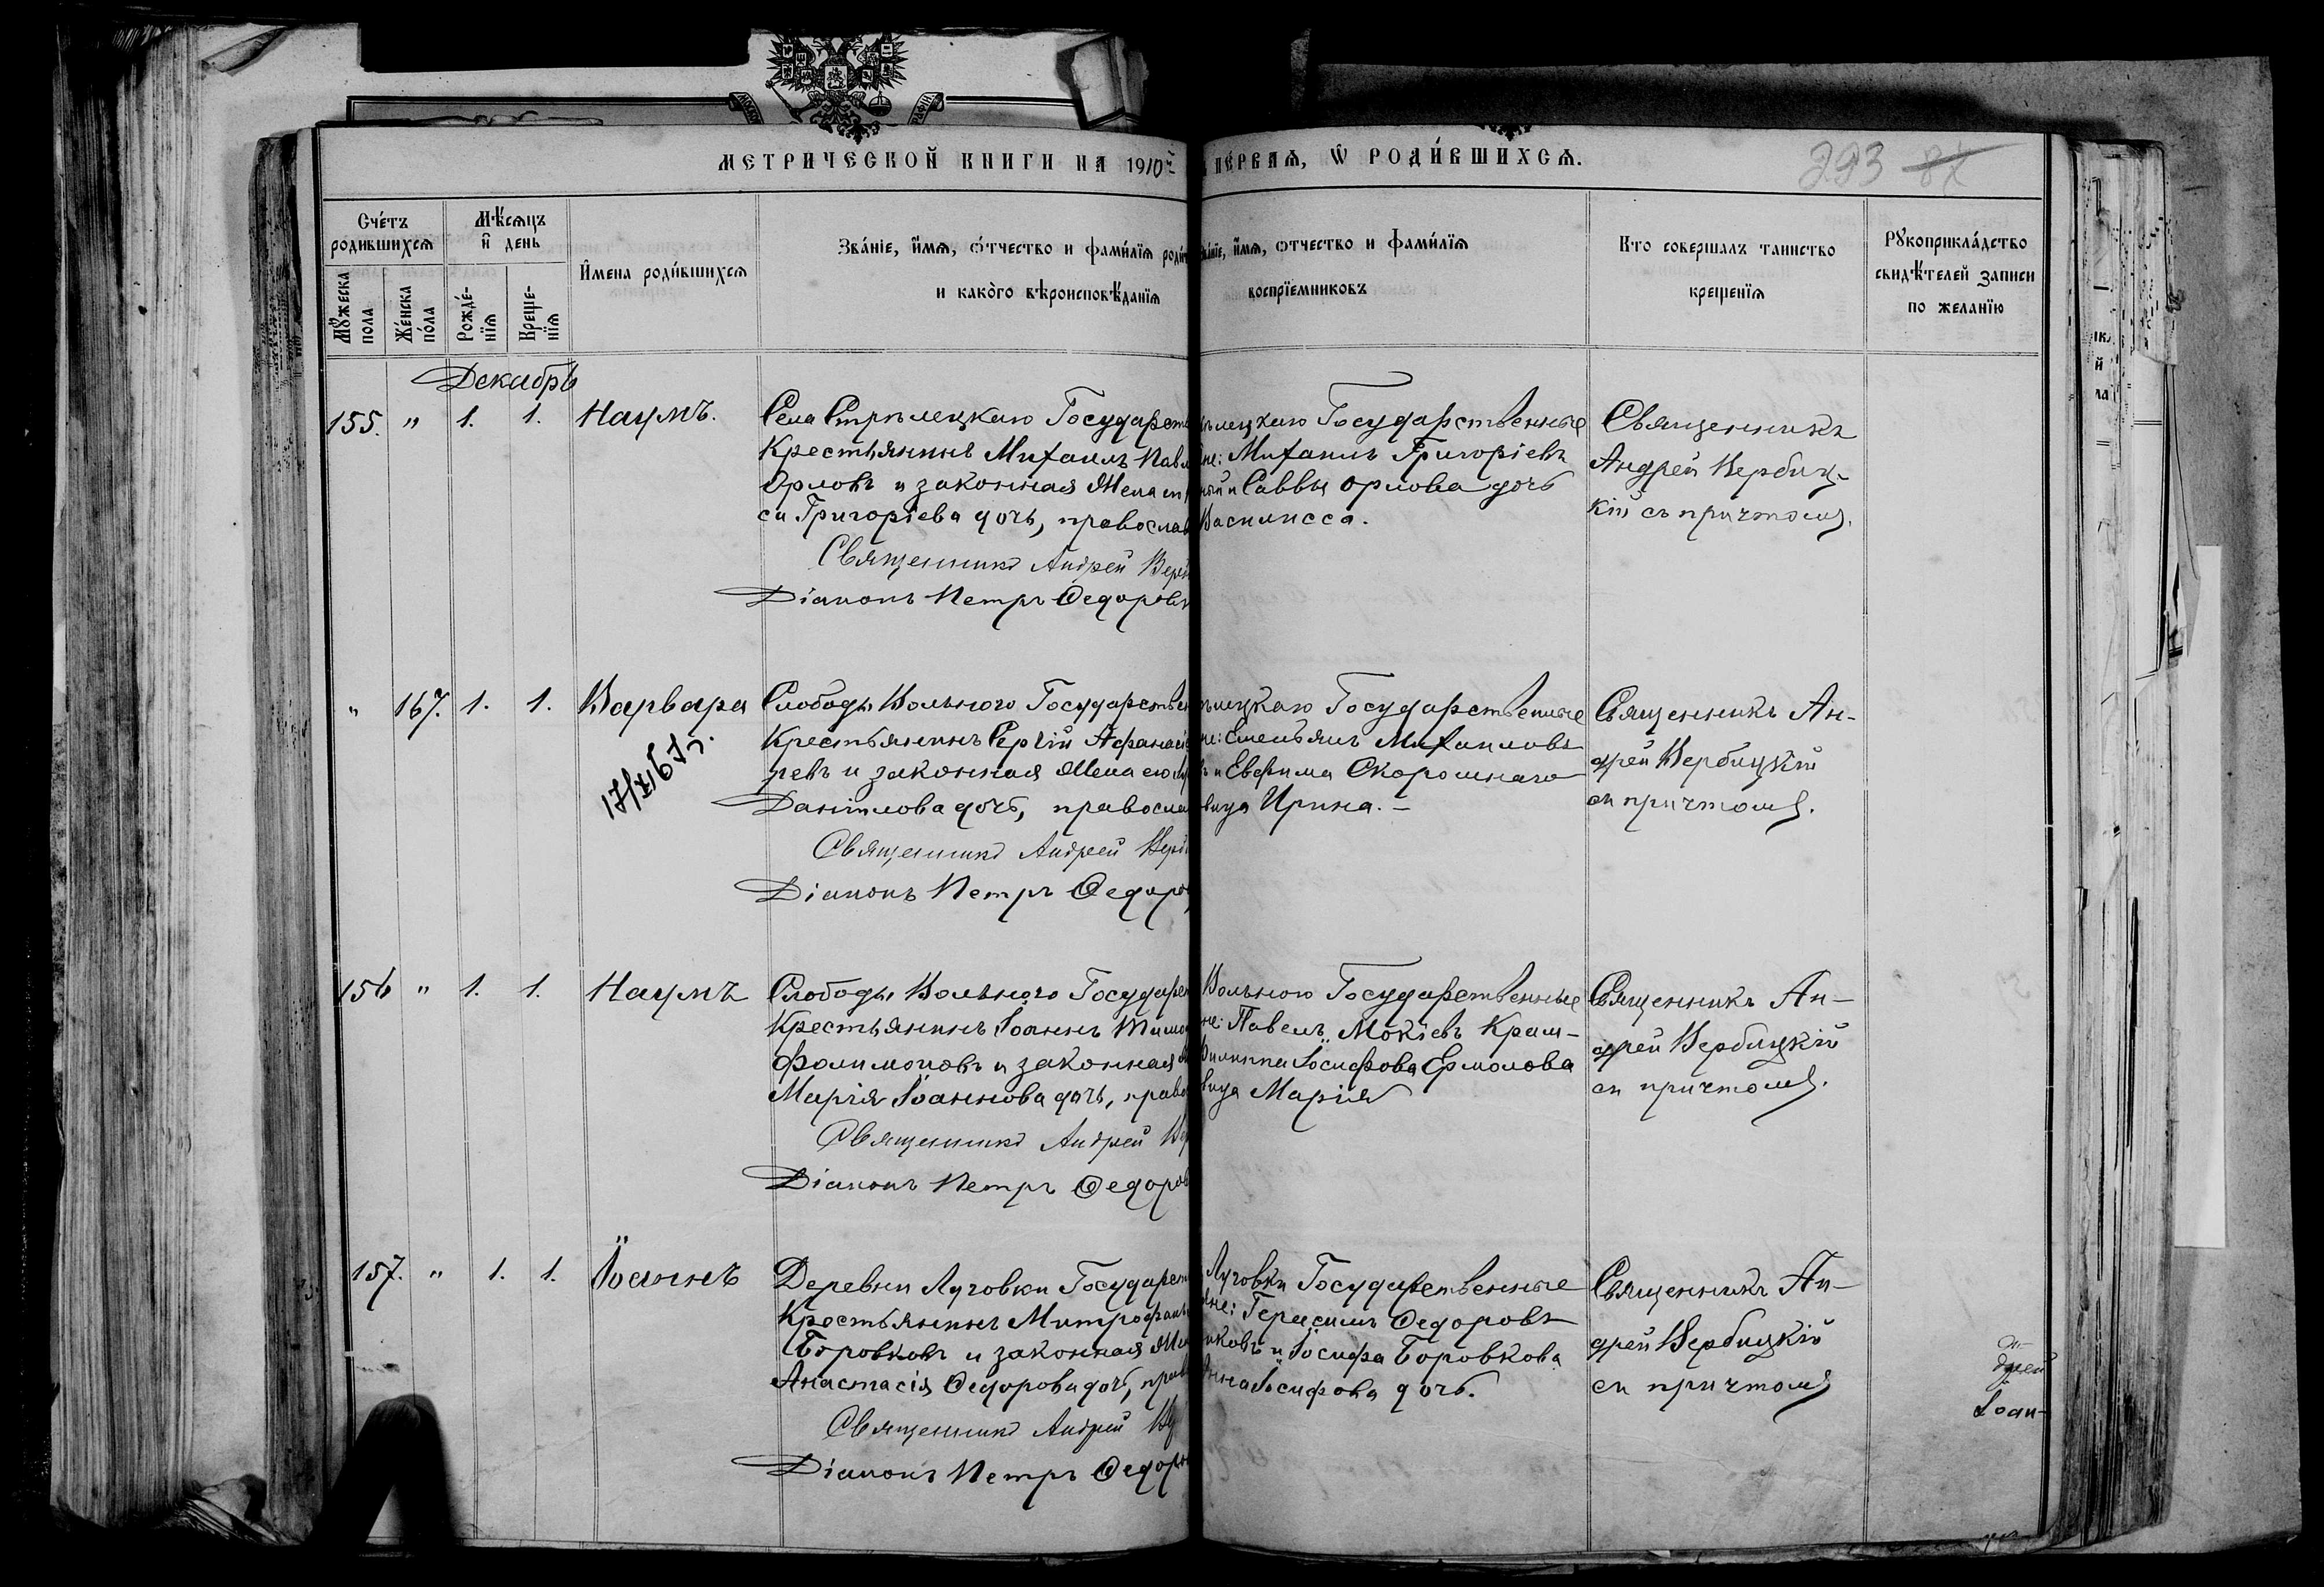 МЕТРИЧЕСКОЙ КНИГИ НА 1910й
ПЕРВАЯ, Ѡ РОДИ́ВШИХСЯ.
293 87
Сче́тъ родившихся
Мѣ́сяцъ и день
И҆мена роди́вшихся
Зва́нїе, и҆́мя, ѻ҆́тчество и фами́лїя роди
и како́го вѣроисповѣ́данїя
Мꙋ́жеска пола
Же́нска по́ла
Рожде́-нїя
Креще-нїя
и҆́мя, ѻтчество и фами́лїя
воспрїемниковъ
Кто совершалъ таинство
крещенїя
Рꙋкоприкла́дство
свидѣ́телей записи
по желанїю
Декабрь
155. " 1. 1. Наумъ.
Села Стрѣлецкаго Государств
Крестьянинъ Михаилъ Павл
Орловъ и законная Жена
Григоріева дочь, православ
Священникъ Андрей Верб
Діаконъ Петръ Ѳедоровъ
ѣлецкаго Государственные
не: Михаилъ Григоріевъ
Саввы Орлова дочь
Василисса.
Священникъ
Андрей Вербиц-
кій съ причтомъ.
" 167. 1. 1. Варвара
17/XI 67 г.
Слободы Вольного Государствен
Крестьянинъ Сергій Аѳанасі
ревъ и законная Жена его
Даніилова дочь, правосла
Священникъ Андрей Верб
Діаконъ Петръ Ѳедоро
ѣлецкаго Государственные
не: Емельянъ Михаиловъ
и Евфима Скорошнаго
вица Ирина. –
Священникъ Ан-
дрей Вербицкій
съ причтомъ.
156 " 1. 1. Наумъ
Слободы Вольного Государ
Крестьянинъ Іоаннъ Тимо
Фолимоновъ и законная
Марія Іоаннова дочь, право
Священникъ Андрей Вер
Діаконъ Петръ Ѳедоров
Вольного Государственные
не: Павелъ Мокіевъ Крам-
Филиппа Іосифова Ермолова
вица Марія
Священникъ Ан-
дрей Вербицкій
съ причтомъ.
157. " 1. 1. Іоаннъ
Деревни Луговки Государст
Крестьянинъ Митрофанъ
Боровковъ и законная Же
Анастасія Ѳедорова дочь, прав
Священникъ Андрей Ве
Діаконъ Петръ Ѳедоров
Луговки Государственные
яне: Герасимъ Ѳедоровъ
иковъ и Іосифа Боровкова
Анна Іосифова дочь.
Священникъ Ан-
дрей Вербицкій
съ причтомъ
дрей
Іоан-